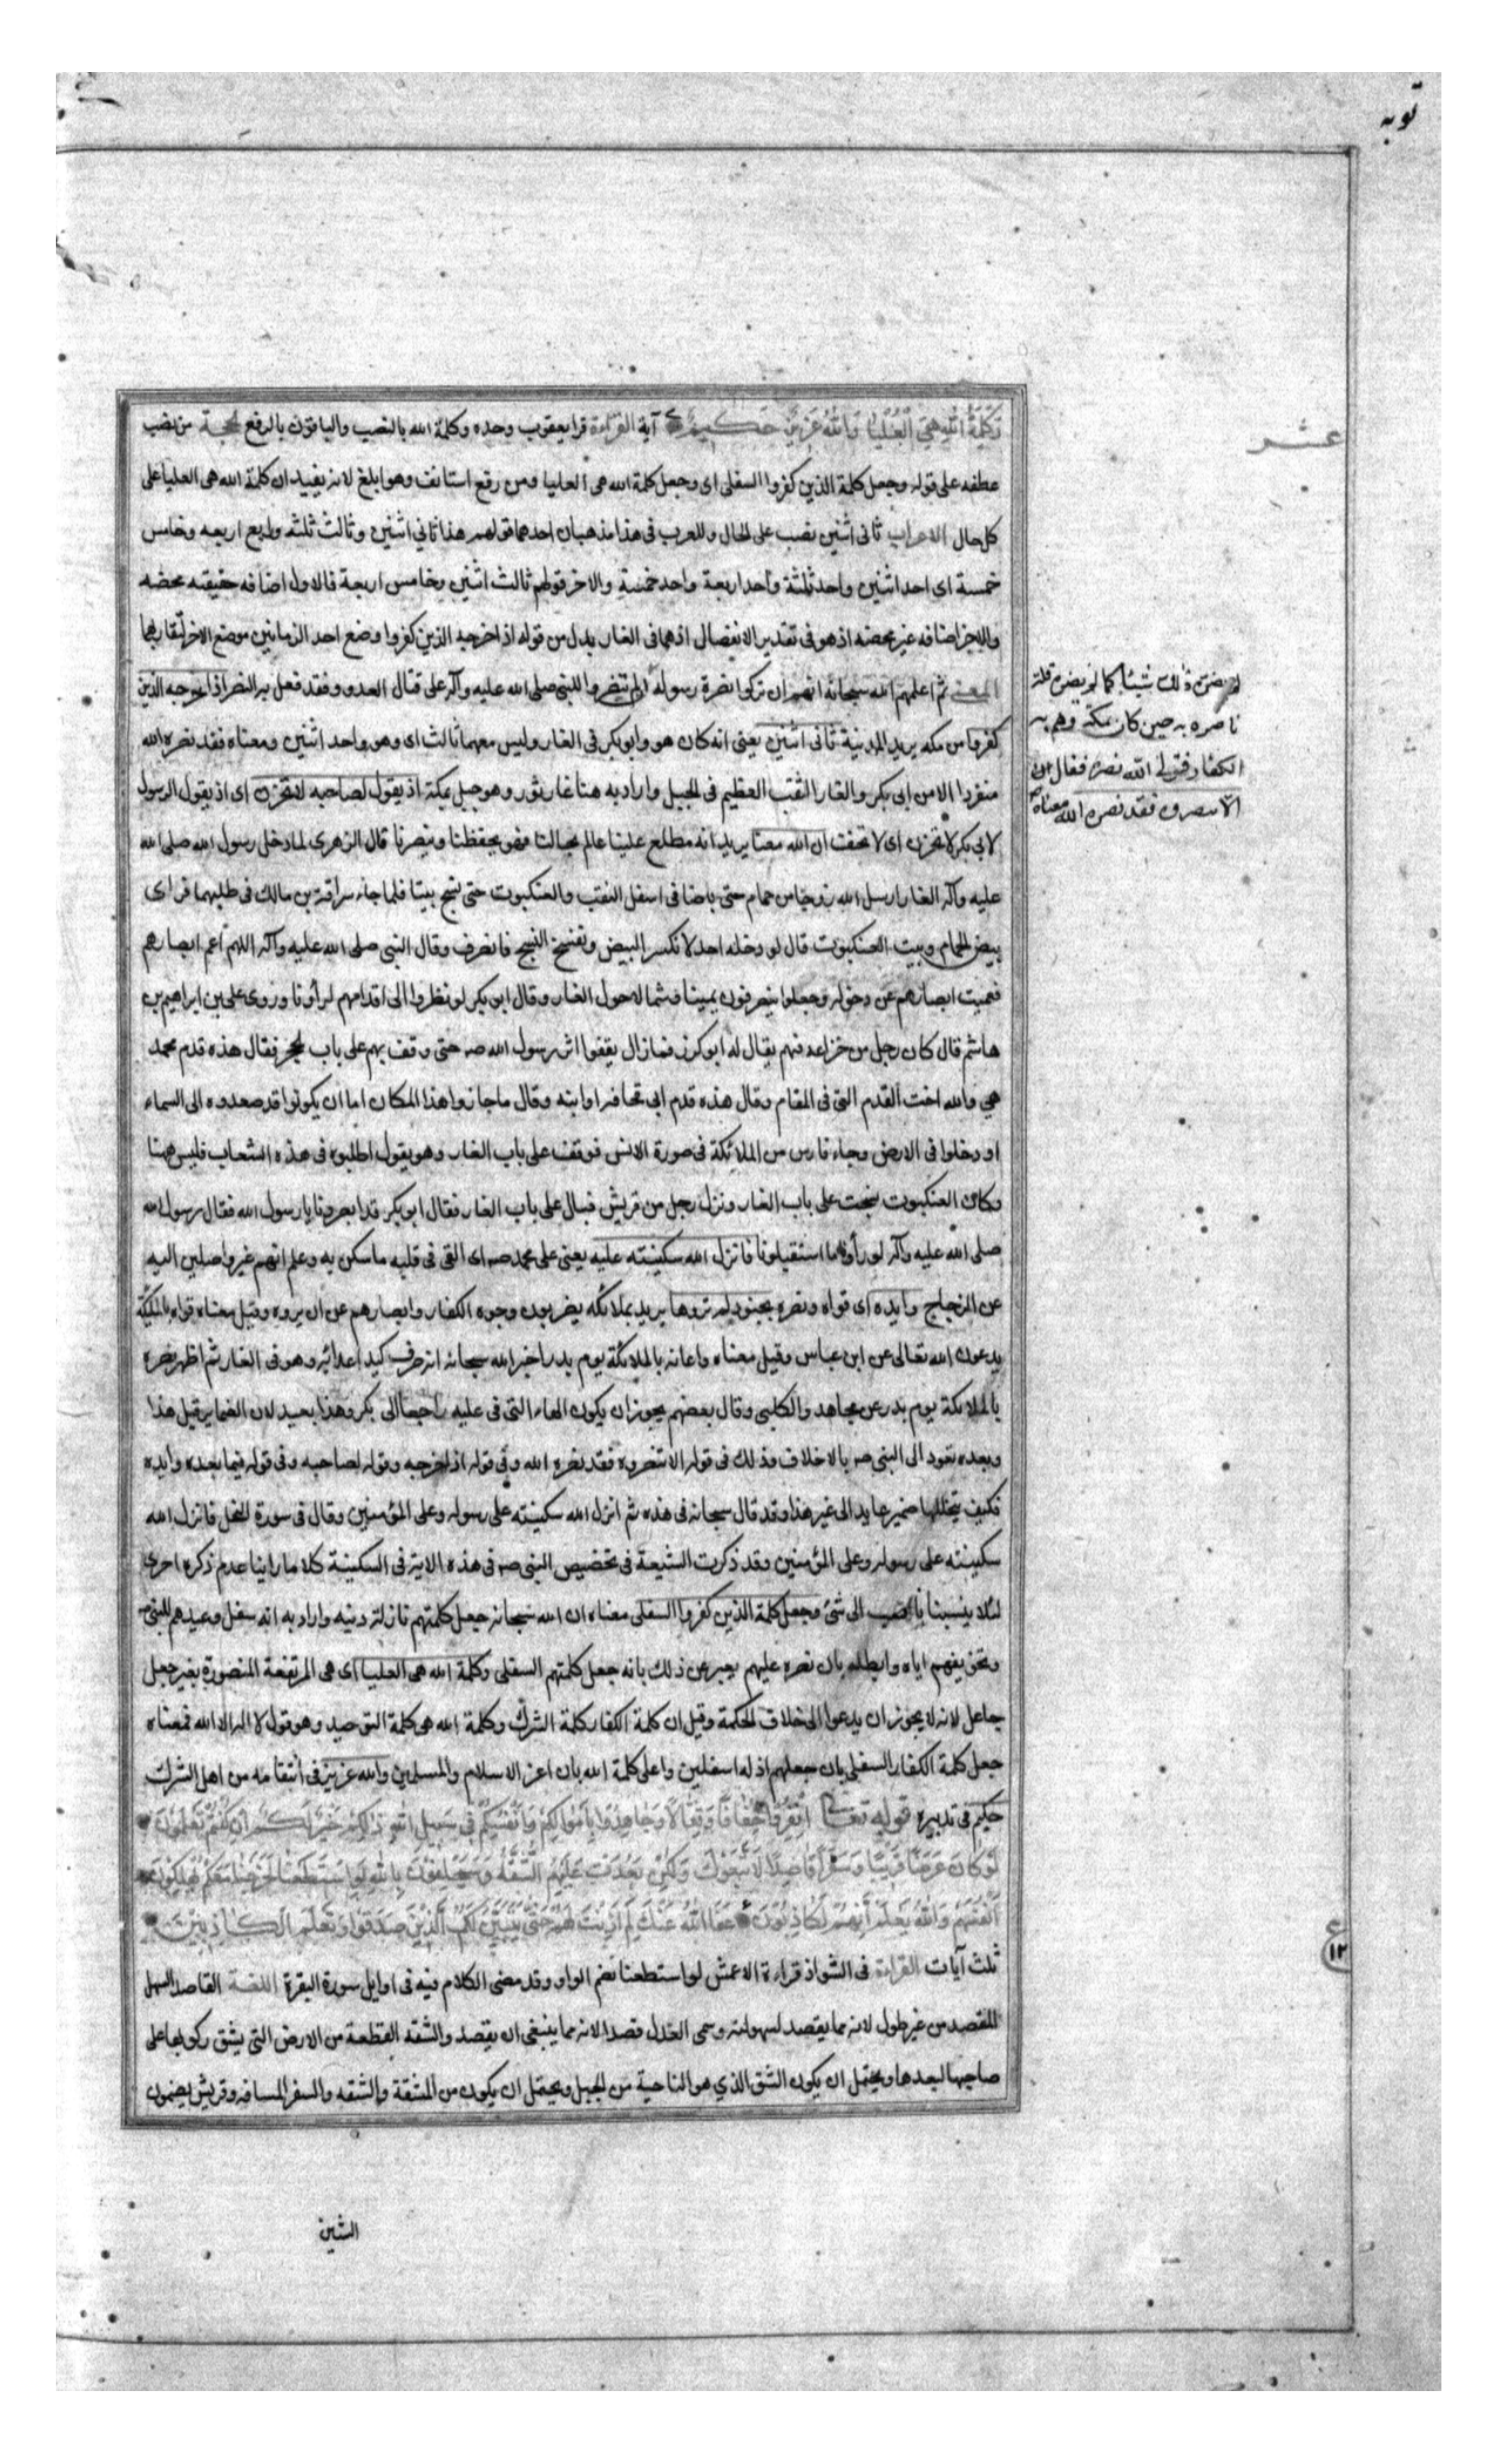 توبه
وَكَلِمَةُ اللهِ هِيَ الْعُلْيَا وَاللهُ عَزِيزٌ حَكِيمٌ آية القراءة قرا يعقوب وحده وكلمة الله بالنصب والباقون بالرفع الحجة من نصب
عطفه على قوله وجعل كلمة الذين كفروا السفلى اى وجعل كلمة الله هى العليا ومن رفع استانف وهو ابلغ لانه يفيد ان كلمة الله هى العليا على
كل حال الاعراب ثانى اثنين نصب على الحال وللعرب فى هذا مذهبان احدهما قولهم هذا ثانى اثنين وثالث ثلثه ورابع اربعه وخامس
خمسة اى احد اثنين واحد ثلثة واحد اربعة واحد خمسة والاخر قولهم ثالث اثنين وخامس اربعة فالاول اضافه حقيقته محضه
والاخر اضافه غير محضه اذ هو فى تقدير الانفصال اذ هما فى الغار بدل من قوله اذ اخرجه الذين كفروا وضع احد الزمانين موضع الاخر لتقاربهما
المعنى ثم اعلمهم الله سبحانه انهم ان تركوا نصرة رسوله الا تنصروا النبى صلى الله عليه وآله على قتال العدو فقد فعل به النصر اذ اخرجه الذين
كفروا من مكه يريد المدينة ثانى اثنين يعنى انه كان هو وابو بكر فى الغار وليس معهما ثالث اى وهو واحد اثنين ومعناه فقد نصره الله
منفردا الا من ابى بكر والغار الثقب العظيم فى الجبل واراد به هنا غار ثور وهو جبل بمكة اذ يقول لصاحبه لا تحزن اى اذ يقول الرسول
لابى بكر لا تحزن اى لا تخف ان الله معنا يريد انه مطلع علينا عالم بحالنا فهو يحفظنا وينصرنا قال الزهرى لما دخل رسول الله صلى الله
عليه وآله الغار ارسل الله زوجا من حمام حتى باضا فى اسفل النقب والعنكبوت حتى نسج بيتا فلما جاء سراقة بن مالك فى طلبهما فراى
بيض الحمام وبيت العنكبوت قال لو دخله احد لانكسر البيض وتفسخ النسج فانصرف وقال النبى صلى الله عليه وآله اللهم اعم ابصارهم
فعميت ابصارهم عن دخوله وجعلوا يضربون يمينا وشمالا حول الغار وقال ابو بكر لو نظروا الى اقدامهم لرأونا وروى على بن ابراهيم بن
هاشم قال كان رجل من خزاعه فيهم يقال له ابو كرز فمازال يقفوا اثر رسول الله صه حتى وقف بهم على باب الحجر فقال هذه قدم محمد
هى والله اخت القدم التى فى المقام وقال هذه قدم ابى قحافه او ابنه وقال ما جازوا هذا المكان اما ان يكونوا قد صعدوا الى السماء
او دخلوا فى الارض وجاء فارس من الملائكة فى صورة الانس فوقف على باب الغار وهو يقول اطلبوه فى هذه الشعاب فليس ههنا
وكانت العنكبوت نسجت على باب الغار ونزل رجل من قريش فبال على باب الغار فقال ابو بكر قد ابصرونا يا رسول الله فقال رسول الله
صلى الله عليه وآله لو رأونا ما استقبلونا فانزل الله سكينته عليه يعنى على محمد صه اى القى فى قلبه ما سكن به وعلم انهم غير واصلين اليه
عن الزجاج وايده اى قواه ونصره بجنود لم تروها يريد بملائكه يضربون وجوه الكفار وابصارهم عن ان يروه وقيل معناه قواه بالملئكة
يدعون الله تعالى عن ابن عباس وقيل معناه واعانه بالملائكة يوم بدر اخبر الله سبحانه انه صرف كيد اعدائه وهو فى الغار ثم اظهر نصره
بالملائكة يوم بدر عن مجاهد والكلبى وقال بعضهم يجوز ان يكون الهاء التى فى عليه راجعا الى بكر وهذا بعيد لان الضماير قبل هذا
وبعده تعود الى النبى صه بلا خلاف وذلك فى قوله الا تنصروه فقد نصره الله وفى قوله اذ اخرجه وقوله لصاحبه وفى قوله فيما بعده وايده
فكيف يتخللها ضمير عايد الى غير هذا وقد قال سبحانه فى هذه ثم انزل الله سكينته على رسوله وعلى المؤمنين وقال فى سورة الفتح فانزل الله
سكينته على رسوله وعلى المؤمنين وقد ذكرت الشيعة فى تخصيص النبى صه فى هذه الاية فى السكينة كلاما راينا عدم ذكره احرى
لئلا ينسبنا ناسب الى شئ وجعل كلمة الذين كفروا السفلى معناه ان الله سبحانه جعل كلمتهم نازلة دنيه واراد به انه سفل وعيدهم للنبى
وتخويفهم اياه وابطله بان نصره عليهم يعبر عن ذلك بانه جعل كلمتهم السفلى وكلمة الله هى العليا اى هى المرتفعة المنصورة بغير جعل
جاعل لانه لا يجوز ان يدعوا الى خلاف الحكمة وقيل ان كلمة الكفار كلمة الشرك وكلمة الله هى كلمة التوحيد وهو قول لا اله الا الله فمعناه
جعل كلمة الكفار السفلى بان جعلهم اذله اسفلين واعلى كلمة الله بان اعز الاسلام والمسلمين والله عزيز فى انتقامه من اهل الشرك
حكيم فى تدبيره قوله تعالى انْفِرُوا خِفَافًا وَثِقَالًا وَجَاهِدُوا بِأَمْوَالِكُمْ وَأَنْفُسِكُمْ فِي سَبِيلِ اللهِ ذَلِكُمْ خَيْرٌ لَكُمْ إِنْ كُنْتُمْ تَعْلَمُونَ
لَوْ كَانَ عَرَضًا قَرِيبًا وَسَفَرًا قَاصِدًا لَاتَّبَعُوكَ وَلَكِنْ بَعُدَتْ عَلَيْهِمُ الشُّقَّةُ وَسَيَحْلِفُونَ بِاللهِ لَوِ اسْتَطَعْنَا لَخَرَجْنَا مَعَكُمْ يُهْلِكُونَ
أَنْفُسَهُمْ وَاللهُ يَعْلَمُ إِنَّهُمْ لَكَاذِبُونَ عَفَا اللهُ عَنْكَ لِمَ أَذِنْتَ لَهُمْ حَتَّى يَتَبَيَّنَ لَكَ الَّذِينَ صَدَقُوا وَتَعْلَمَ الْكَاذِبِينَ
ثلث آيات القراءة فى الشواذ قراءة الاعمش لو استطعنا بضم الواو وقد مضى الكلام فيه فى اوايل سورة البقرة اللغة القاصد السهل
المقصد من غير طول لانه مما يقصد لسهولته وسمى العدل قصدا لانه مما ينبغى ان يقصد والشقه القطعة من الارض التى يشق ركوبها على
صاحبها لبعدها ويحتمل ان يكون الشق الذي هو الناحية من الجبل ويحتمل ان يكون من المشقة والشقه والسفر المسافه وقريش يضمون
لم يضره ذلك شيئا كما لم يضره قلة
ناصره به حين كان بمكة وهم به
الكفار فتولى الله نصره فقال
الا تنصروه فقد نصره الله معناه
عشر
ع
١٢
الشين